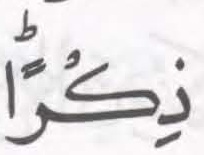 ذِكْرًاؕ